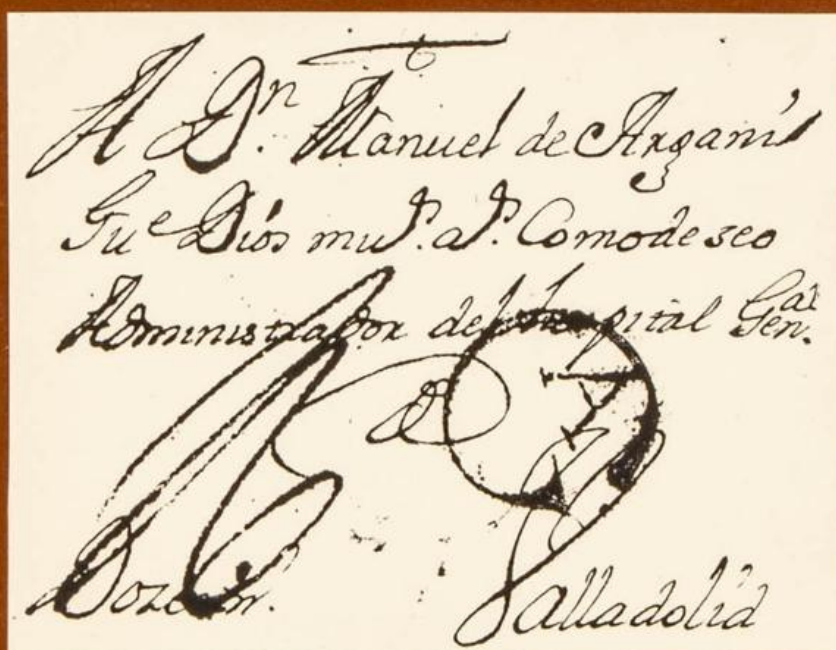 A Dn. Manuel de Arganis
Gue Dios mus. as. Como deseo
Administrador del hospital Genal.
d
Valladolid